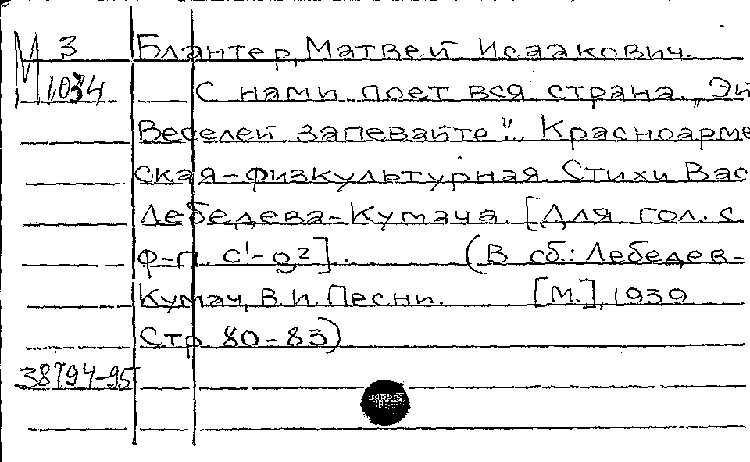 М 3 Блантер, Матвей Исаакович.
1034 С нами поет вся страна. „Эй
Веселей запевайте". Красноарме
ская-физкультурная. Стихи Вас
Лебедева-Кумача. [Для гол. с
ф-п. c¹-g²]. (В сб.: Лебедев-
Кумач, В.И. Песни. [М.], 1939
Стр. 80-83)
38794-95